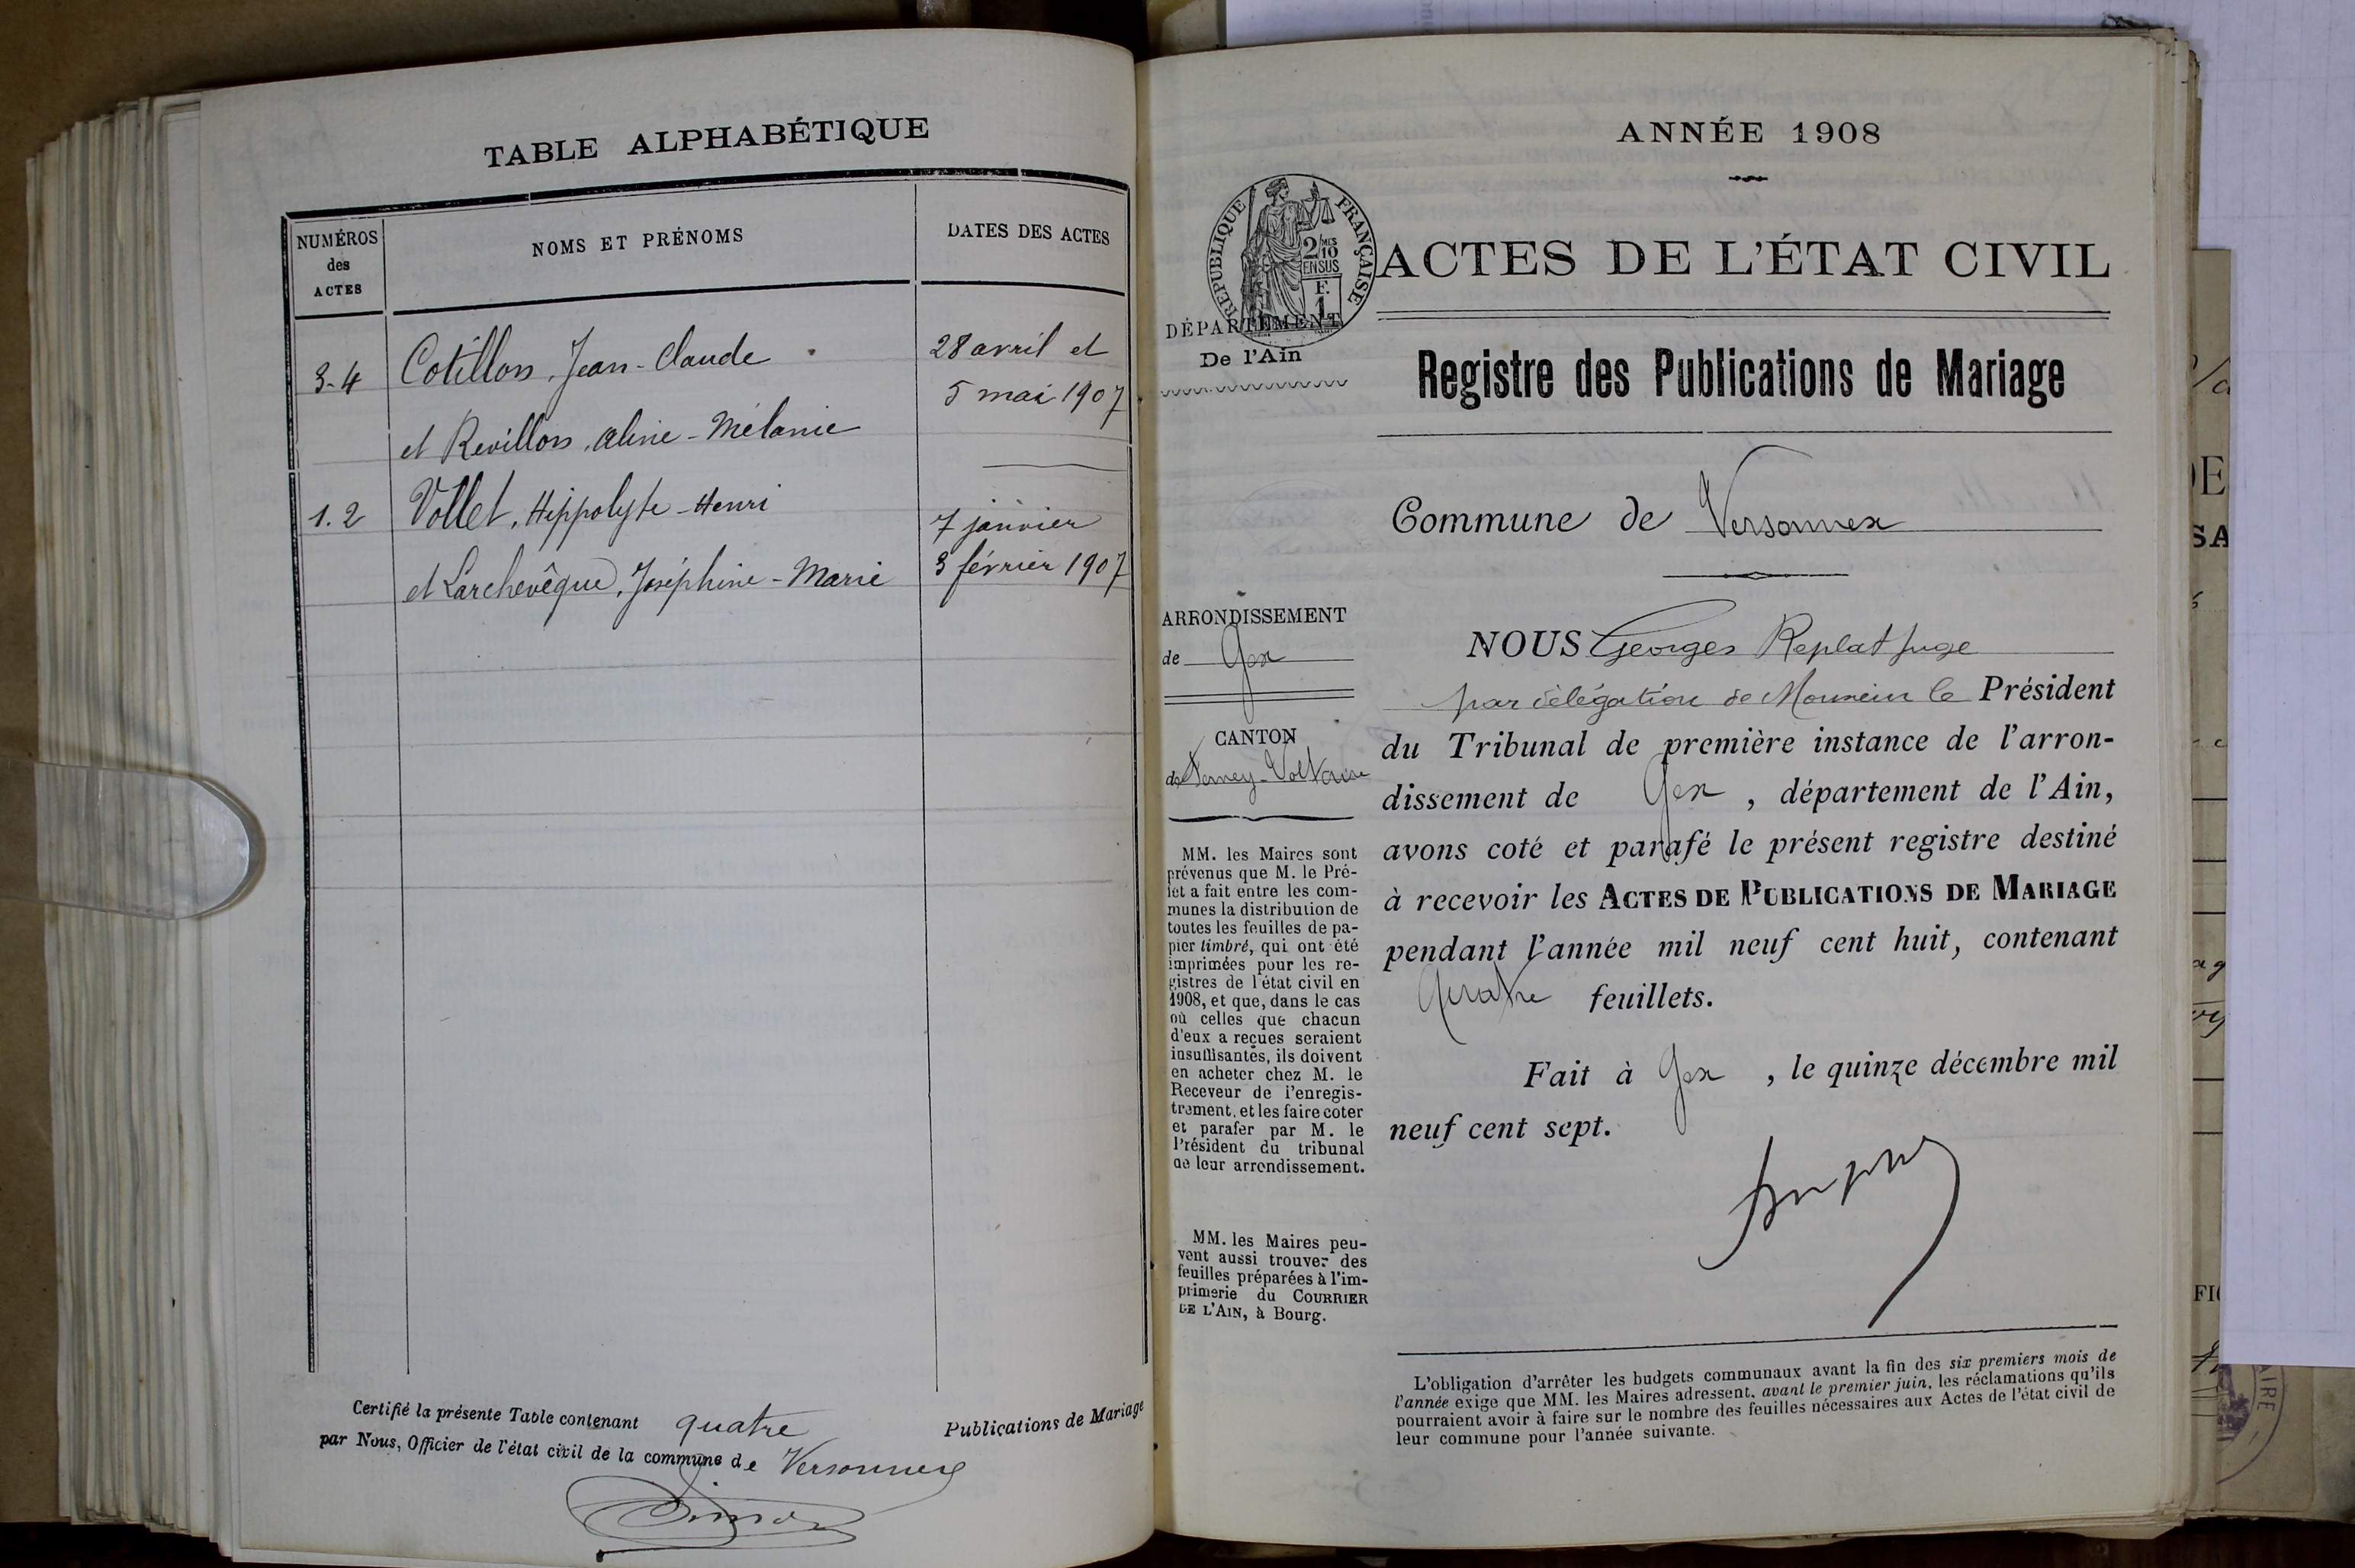 TABLE ALPHABÉTIQUE
NUMÉROS
des
ACTES
NOMS ET PRÉNOMS
DATES DES ACTES
3-4 Cotillon, Jean-Claude 28 avril et
5 mai 1907
et Revillon, Aline-Mélanie
1.2 Vollet, Hippolyte-Henri 7 janvier
et Larchevêque, Joséphine-Marie 3 février 1907
Certifié la présente Table contenant quatre Publications de Mariage
par Nous, Officier de l'état civil de la commune de Versonnex
ANNÉE 1908
RÉPUBLIQUE FRANÇAISE
2/10 MES
EN SUS
F.
1
ACTES DE L'ÉTAT CIVIL
DÉPARTEMENT
De l'Ain
Registre des Publications de Mariage
Commune de Versonnex
ARRONDISSEMENT
de Gex
CANTON
de Ferney-Voltaire
MM. les Maires sont
prévenus que M. le Pré-
fet a fait entre les com-
munes la distribution de
toutes les feuilles de pa-
pier timbré, qui ont été
imprimées pour les re-
gistres de l'état civil en
1908, et que, dans le cas
où celles que chacun
d'eux a reçues seraient
insuffisantes, ils doivent
en acheter chez M. le
Receveur de l'enregis-
trement, et les faire coter
et parafer par M. le
Président du tribunal
de leur arrondissement.
MM. les Maires peu-
vent aussi trouver des
feuilles préparées à l'im-
primerie du COURRIER
DE L'AIN, à Bourg.
NOUS Georges Replat juge
par délégation de Monsieur le Président
du Tribunal de première instance de l'arron-
dissement de Gex, département de l'Ain,
avons coté et parafé le présent registre destiné
à recevoir les ACTES DE PUBLICATIONS DE MARIAGE
pendant l'année mil neuf cent huit, contenant
Quatre feuillets.
Fait à Gex, le quinze décembre mil
neuf cent sept.
L'obligation d'arrêter les budgets communaux avant la fin des six premiers mois de
l'année exige que MM. les Maires adressent, avant le premier juin, les réclamations qu'ils
pourraient avoir à faire sur le nombre des feuilles nécessaires aux Actes de l'état civil de
leur commune pour l'année suivante.